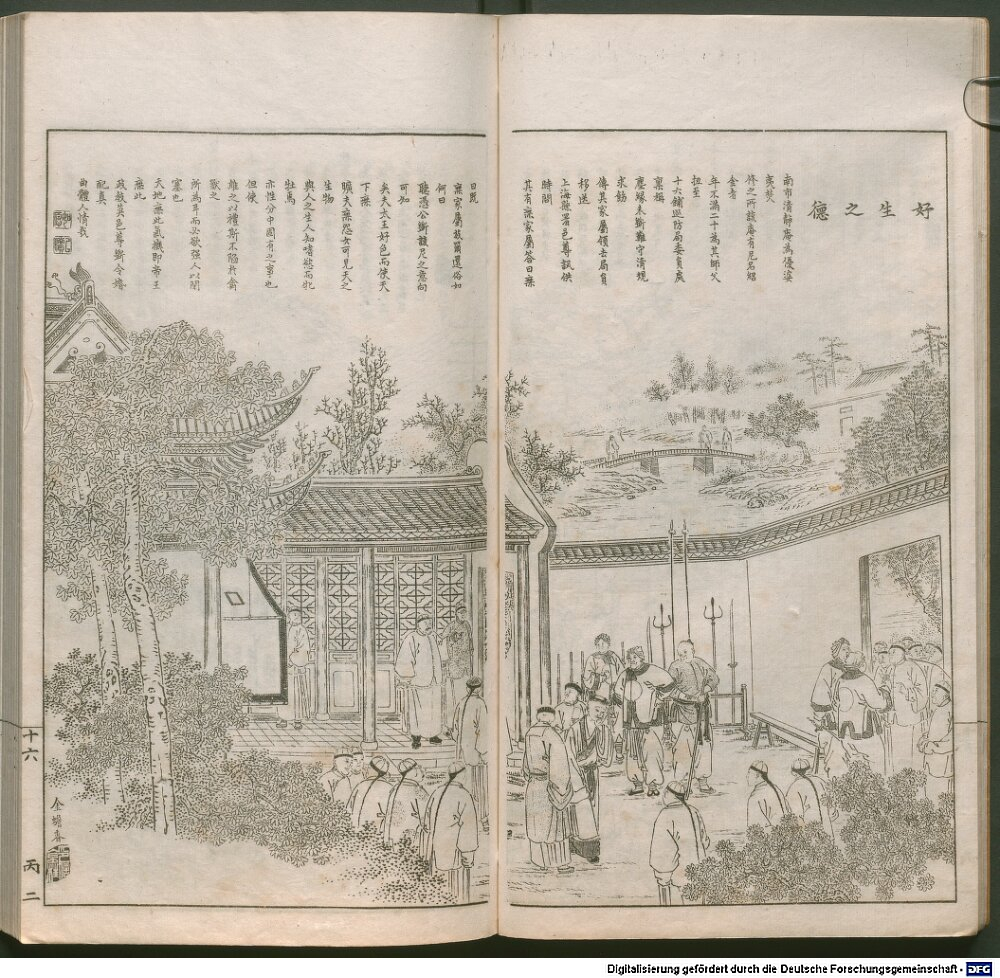 好生之德
南市清靜庵為優婆
夷焚
修之所該庵有尼名紹
金者
年不滿二十為其師父
扭至
十六鋪巡防局委員處
稟稱
塵緣未斷難守清規
求飭
傳其家屬領去局員
移送
上海縣署邑尊訊供
時問
其有無家屬答曰無
曰既
無家屬故爾還俗如
何曰
聽憑公斷該尼之意向
可知
矣夫太王好色而使天
下無
曠夫無怨女可見天之
生物
與人之生人知嗜慾而牝
牡焉
亦性分中固有之事也
但使
維之以禮斯不陷於禽
獸之
所為耳而必欲強人以閉
塞也
天地無此氣機即帝王
無此
政教莫邑尊斷令擇
配真
曲體人情哉
十六
金蟾香
丙二
Digitalisierung gefördert durch die Deutsche Forschungsgemeinschaft - DFG